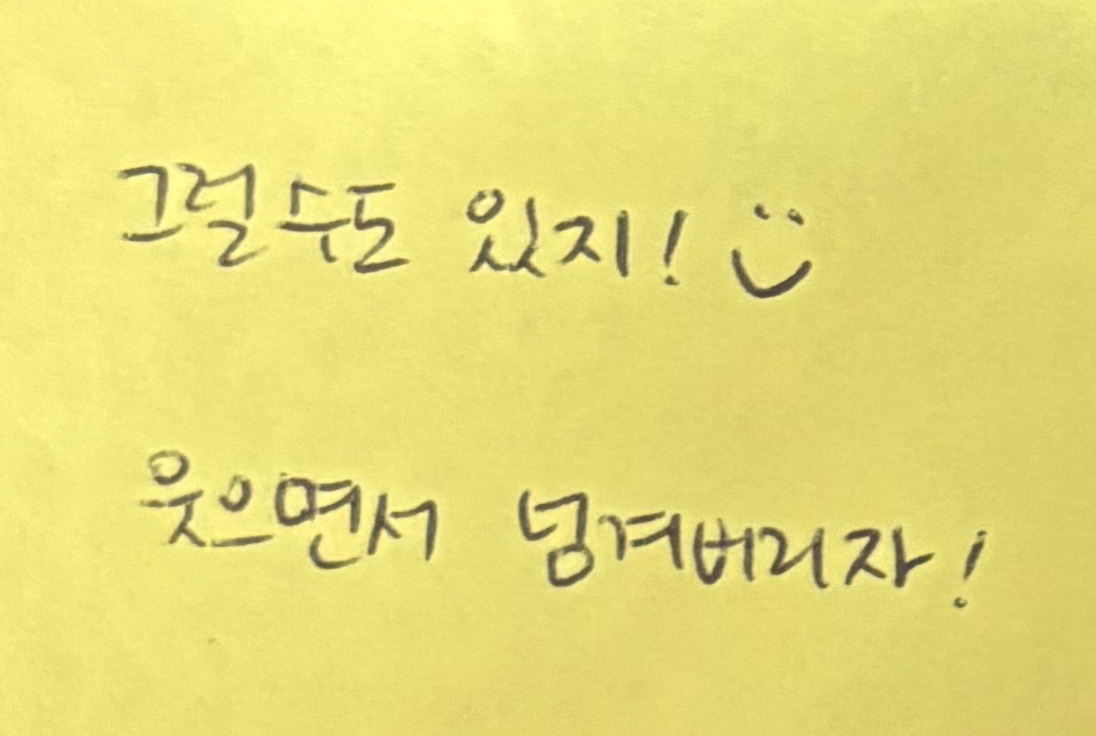 그럴수도 있지! :)
웃으면서 넘겨버리자!